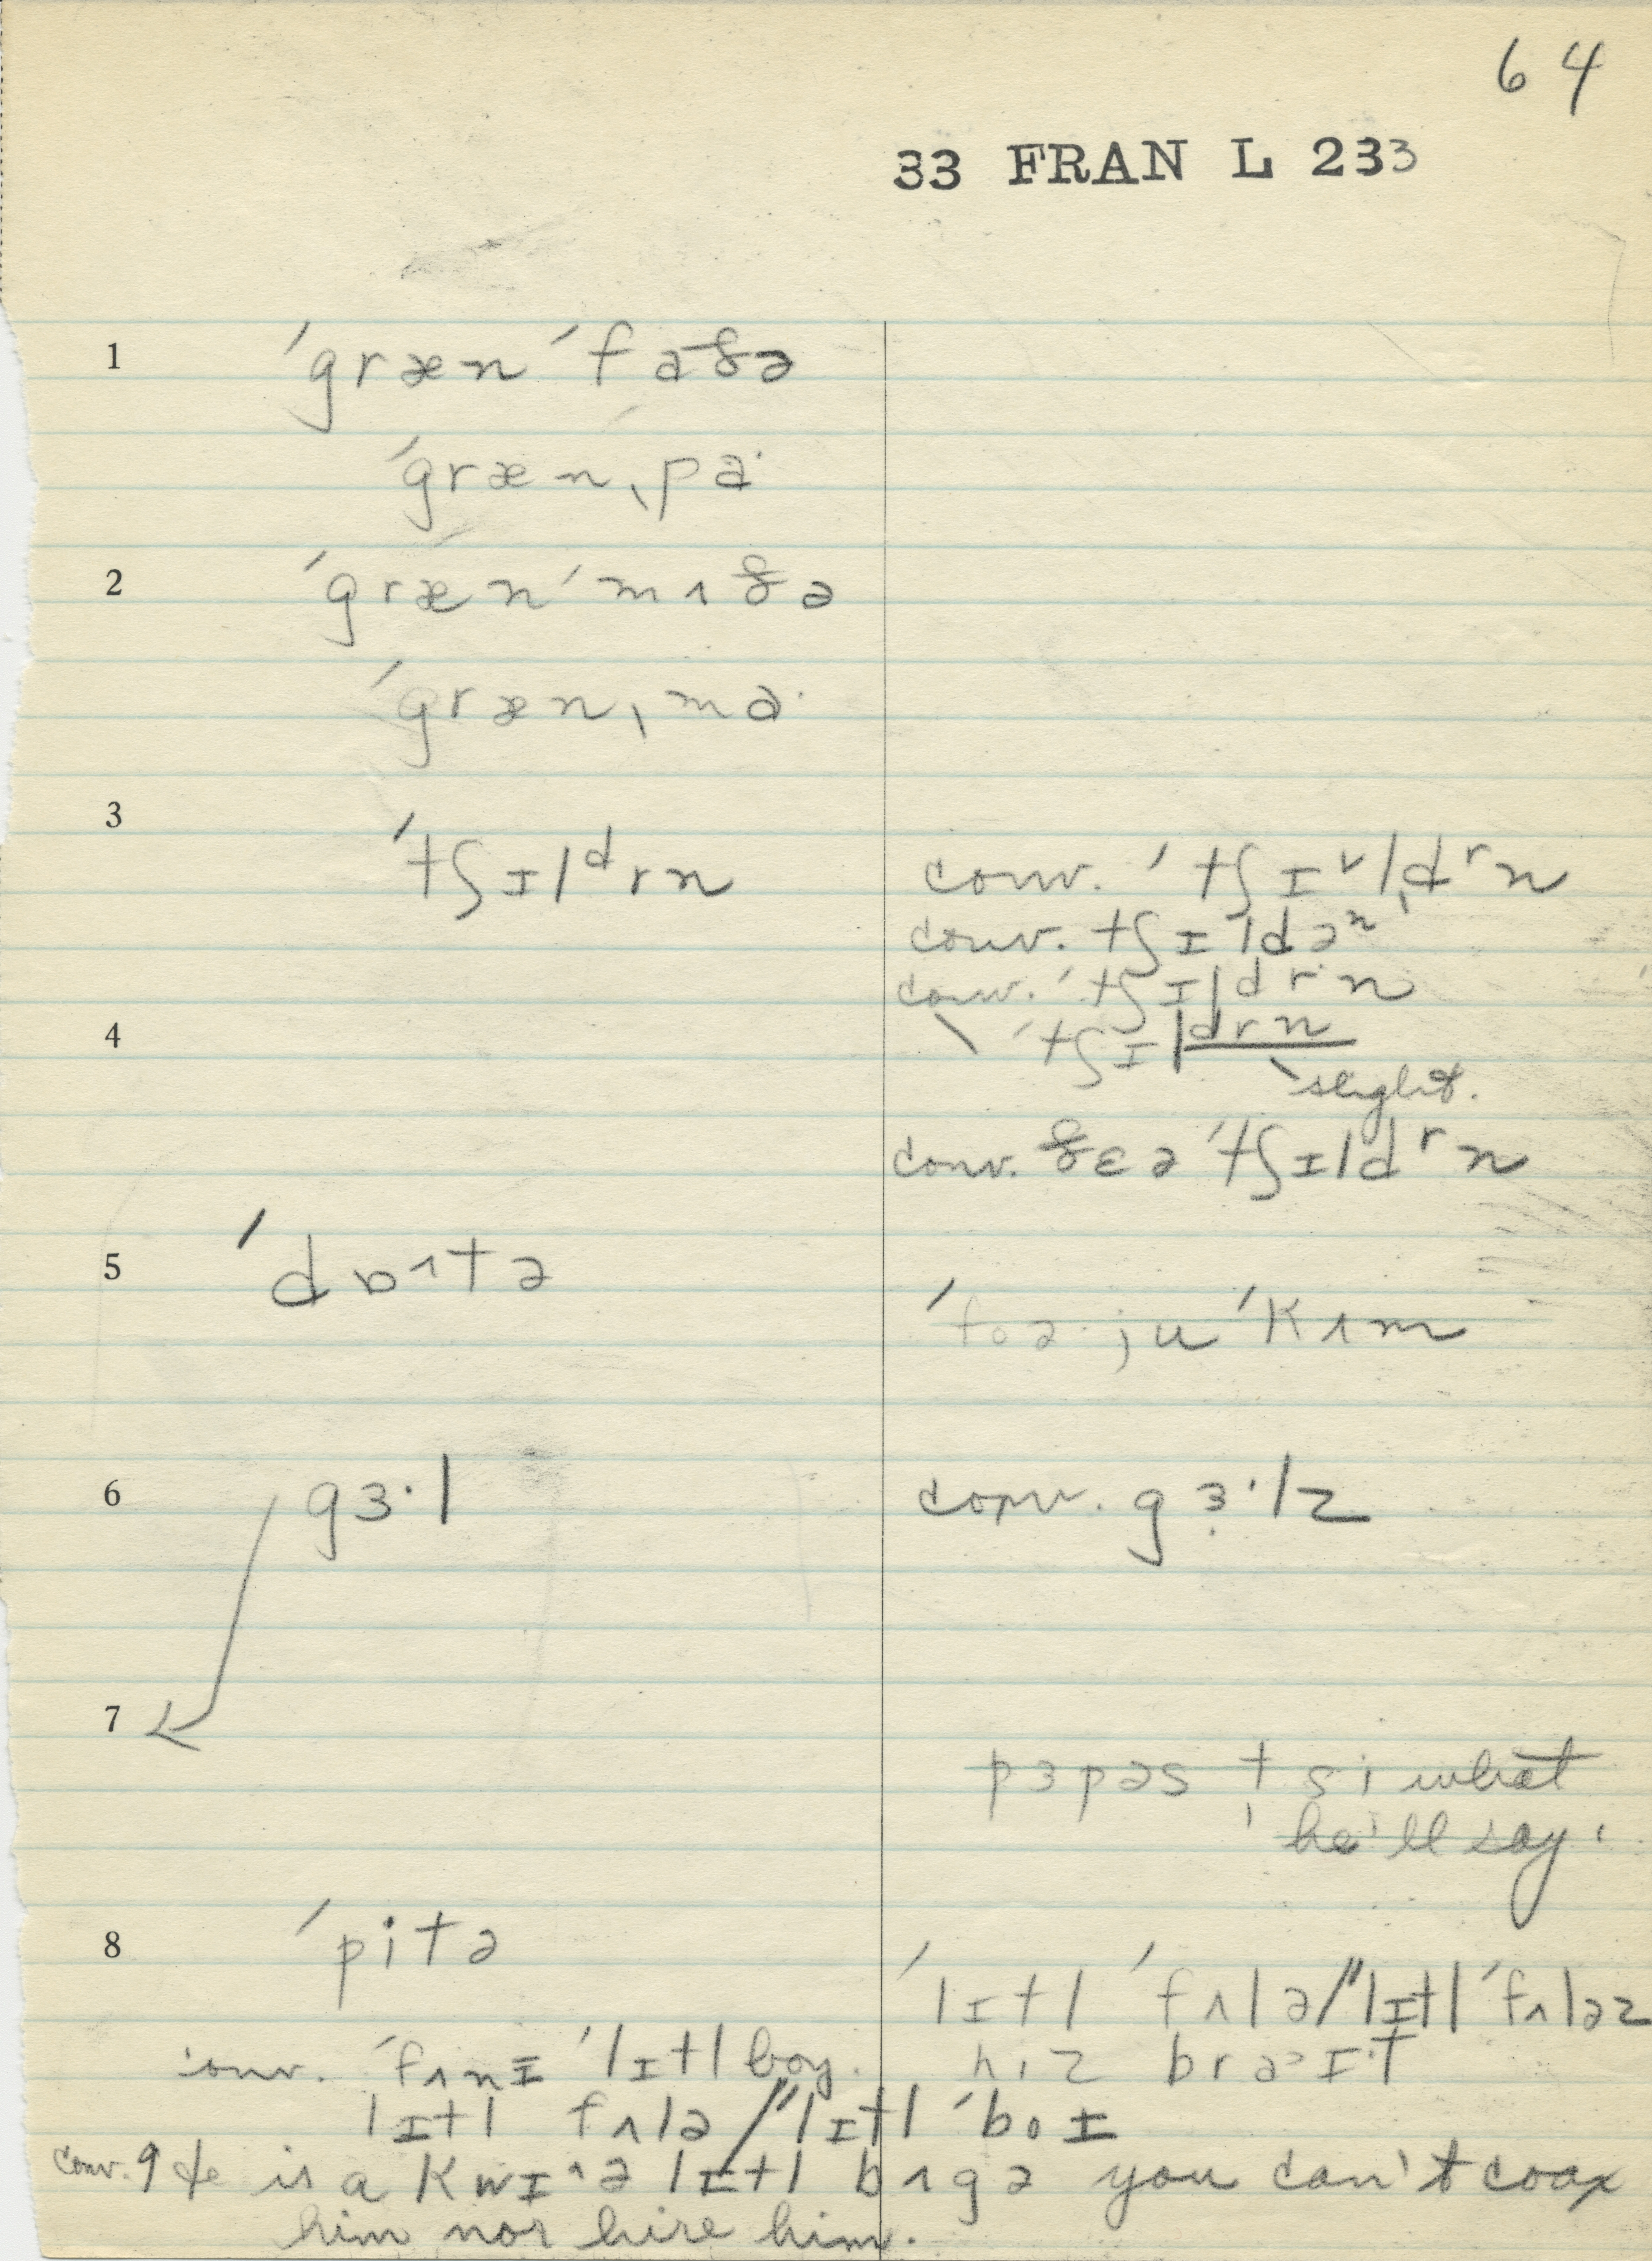 64
33 FRAN L 233
1 ˈgræn ˈfaðə
ˈgrænˌpa·
2 ˈgræn ˈmʌðə
ˈgrænˌma·
3 ˈtʃɪlᵈrn
conv. ˈtʃɪ˅ld̩ʳn
conv. tʃɪldəⁿ
conv. ˈtʃɪldr·n
4 ˈtʃɪldrn
slight.
conv. ðɛə ˈtʃɪldʳn
5 ˈdɒ^tə
ˈfoə· ju ˈkʌm
6 gɜ·l
conv. gɜ·lz
7
pɜpəs t si what
he'll say.
8 ˈpitə
ˈlɪtl ˈfʌlə/ˈˈlɪtl ˈfʌləz
conv. ˈfʌnɪ ˈlɪtl boy.
hiz
lɪtl fʌlə/ˈˈlɪtl ˈboɪ
conv. 9 He is a kwɪ^ə lɪtl bʌgə you can't coax
him nor hire him.